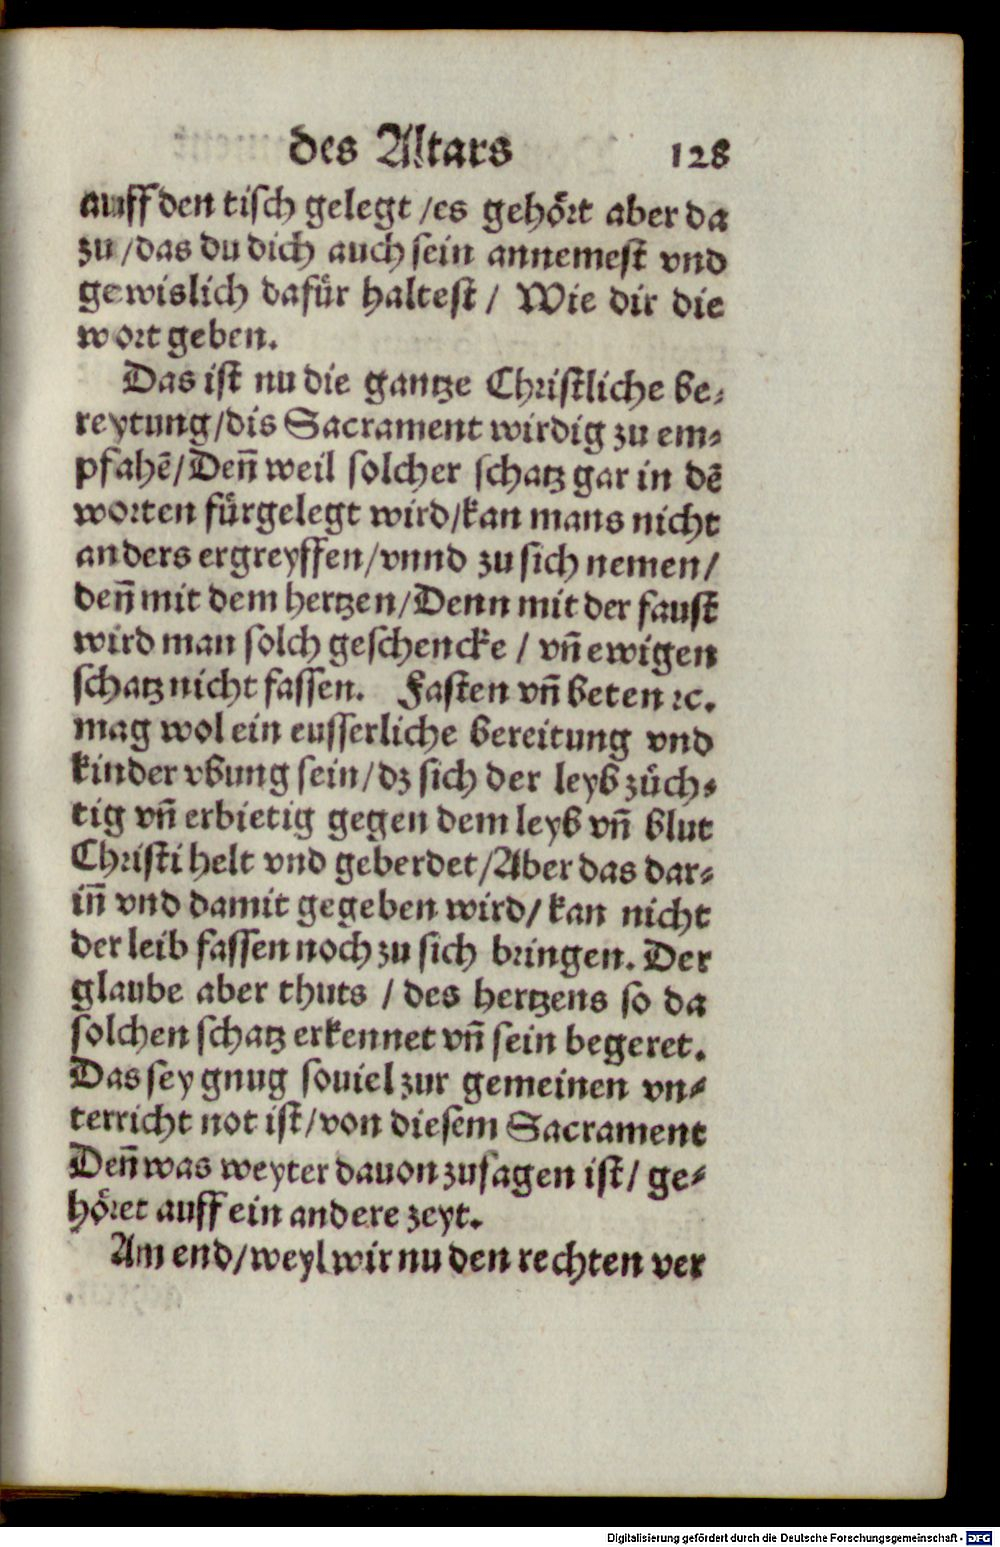 des Altars 128
auff den tisch gelegt /es gehört aber da
zu /das du dich auch sein annemest vnd
gewislich dafür haltest / Wie dir die
wort geben.
Das ist nu die gantze Christliche be-
reytung/dis Sacrament wirdig zu em-
pfahē/Deñ weil solcher schatz gar in dē
worten fürgelegt wird/kan mans nicht
anders ergreyffen/vnnd zu sich nemen/
deñ mit dem hertzen/Denn mit der faust
wird man solch geschencke / vñ ewigen
schatz nicht fassen. Fasten vñ beten ꝛc.
mag wol ein eusserliche bereitung vnd
kinder vbung sein/dz sich der leyb züch-
tig vñ erbietig gegen dem leyb vñ blut
Christi helt vnd geberdet/Aber das dar-
iñ vnd damit gegeben wird/ kan nicht
der leib fassen noch zu sich bringen. Der
glaube aber thuts / des hertzens so da
solchen schatz erkennet vñ sein begeret.
Das sey gnug souiel zur gemeinen vn-
terricht not ist/von diesem Sacrament
Deñ was weyter dauon zusagen ist/ ge-
höret auff ein andere zeyt.
Am end/weyl wir nu den rechten ver
Digitalisierung gefördert durch die Deutsche Forschungsgemeinschaft - DFG